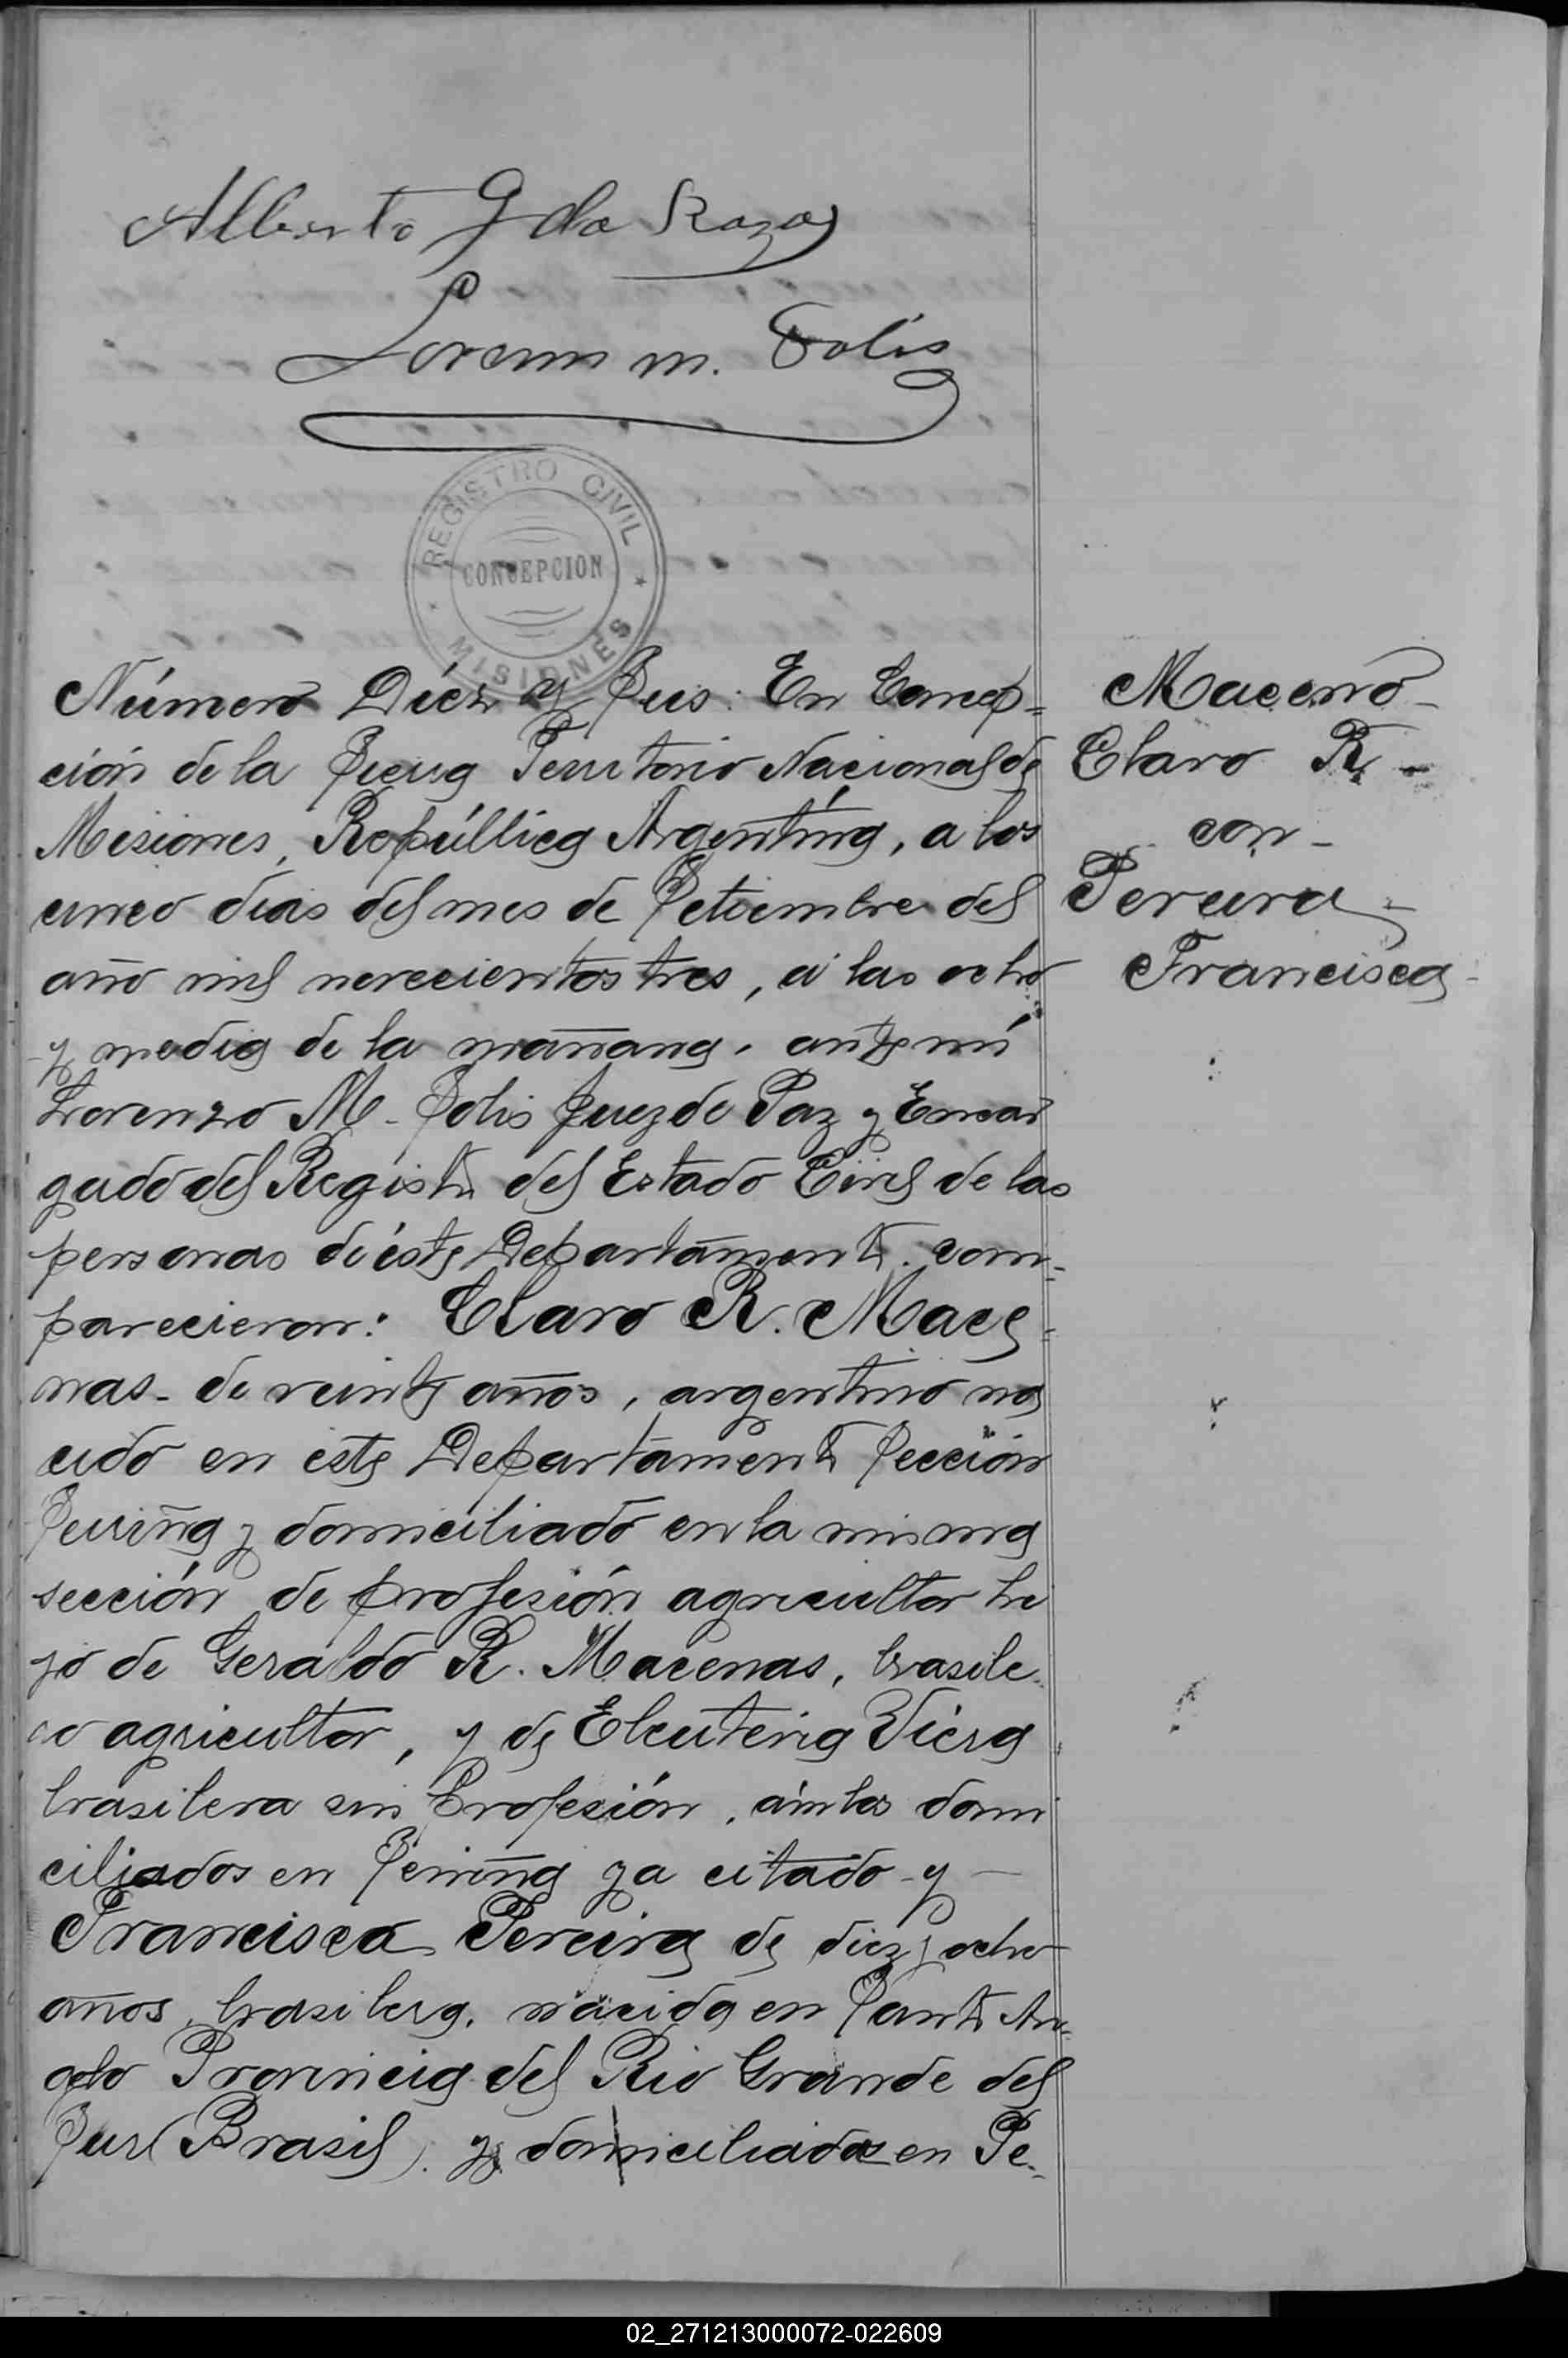 Alberto J da Roza
Lorenzo M. Solis
REGISTRO CIVIL
CONCEPCION
MISIONES
Número Diéz y Seis: En Concep=
ción de la Sierra Territorio Nacional de
Misiones, República Argentina, a los
cinco dias del mes de Setiembre del
año mil novecientos tres, á las ocho
y media de la mañana, ante mí
Lorenzo M. Solis Juez de Paz y Encar
gado del Registro del Estado Civil de las
personas de éste Departamento com=
parecieron: Claro R. Mace=
nas de veinte años, argentino na
cido en este Departamento Sección
y domiciliado en la misma
sección de profesión agricultor hi
jo de Geraldo R. Macenas, brasile
ro agricultor, y de Eleuteria Viera
brasilera sin profesión, ámbos domi
ciliados en ya citado y
Francisca Pereira de diez y ocho
años, brasilera, nacida en Santo An
gelo Provincia del Rio Grande del
Sur (Brasil). y domiciliada en Se
Maceno
Claro R
con
Pereira
Francisca
02_271213000072-022609